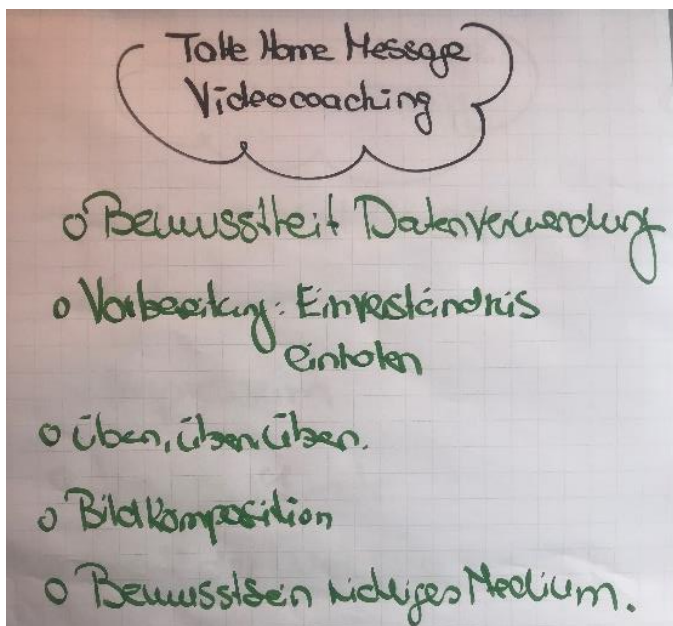 Take Home Message
Videocoaching
o Bewusstheit Datenverwendung
o Vorbereitung: Einverständnis
einholen
o Üben, üben, üben.
o Bildkomposition
o Bewusstsein richtiges Medium.